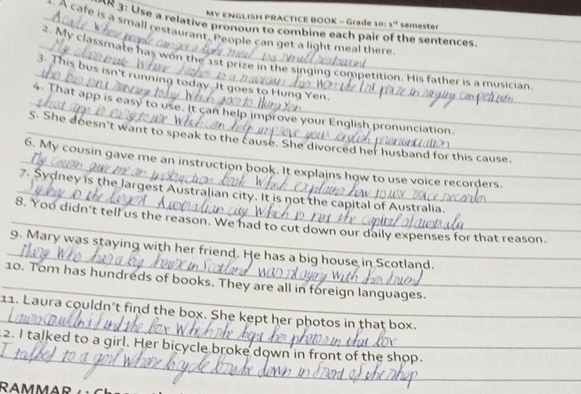 MY ENGLISH PRACTICE BOOK – Grade 10: 1st semester
AR 3: Use a relative pronoun to combine each pair of the sentences.
1. A cafe is a small restaurant. People can get a light meal there.
A cafe where people can get a light meal is a small restaurant
2. My classmate has won the 1st prize in the singing competition. His father is a musician.
My classmate whose father is a musician has won the 1st prize in singing competition
3. This bus isn't running today. It goes to Hung Yen.
the bus isn't running today which goes to Hung Yen
4. That app is easy to use. It can help improve your English pronunciation.
that app is easy to use which can help improve your english pronunciation
5. She doesn't want to speak to the cause. She divorced her husband for this cause.
6. My cousin gave me an instruction book. It explains how to use voice recorders.
My cousin gave me an instruction book which explains how to use voice recorder
7. Sydney is the largest Australian city. It is not the capital of Australia.
Sydney is the largest Australian city which is not the capital of australia
8. You didn't tell us the reason. We had to cut down our daily expenses for that reason.
9. Mary was staying with her friend. He has a big house in Scotland.
Mary who has a big house in Scotland was staying with her friend
10. Tom has hundreds of books. They are all in foreign languages.
11. Laura couldn't find the box. She kept her photos in that box.
Laura couldn't find the box which she kept her photos in that box
2. I talked to a girl. Her bicycle broke down in front of the shop.
I talked to a girl whose bicycle broke down in front of the shop
RAMMAR